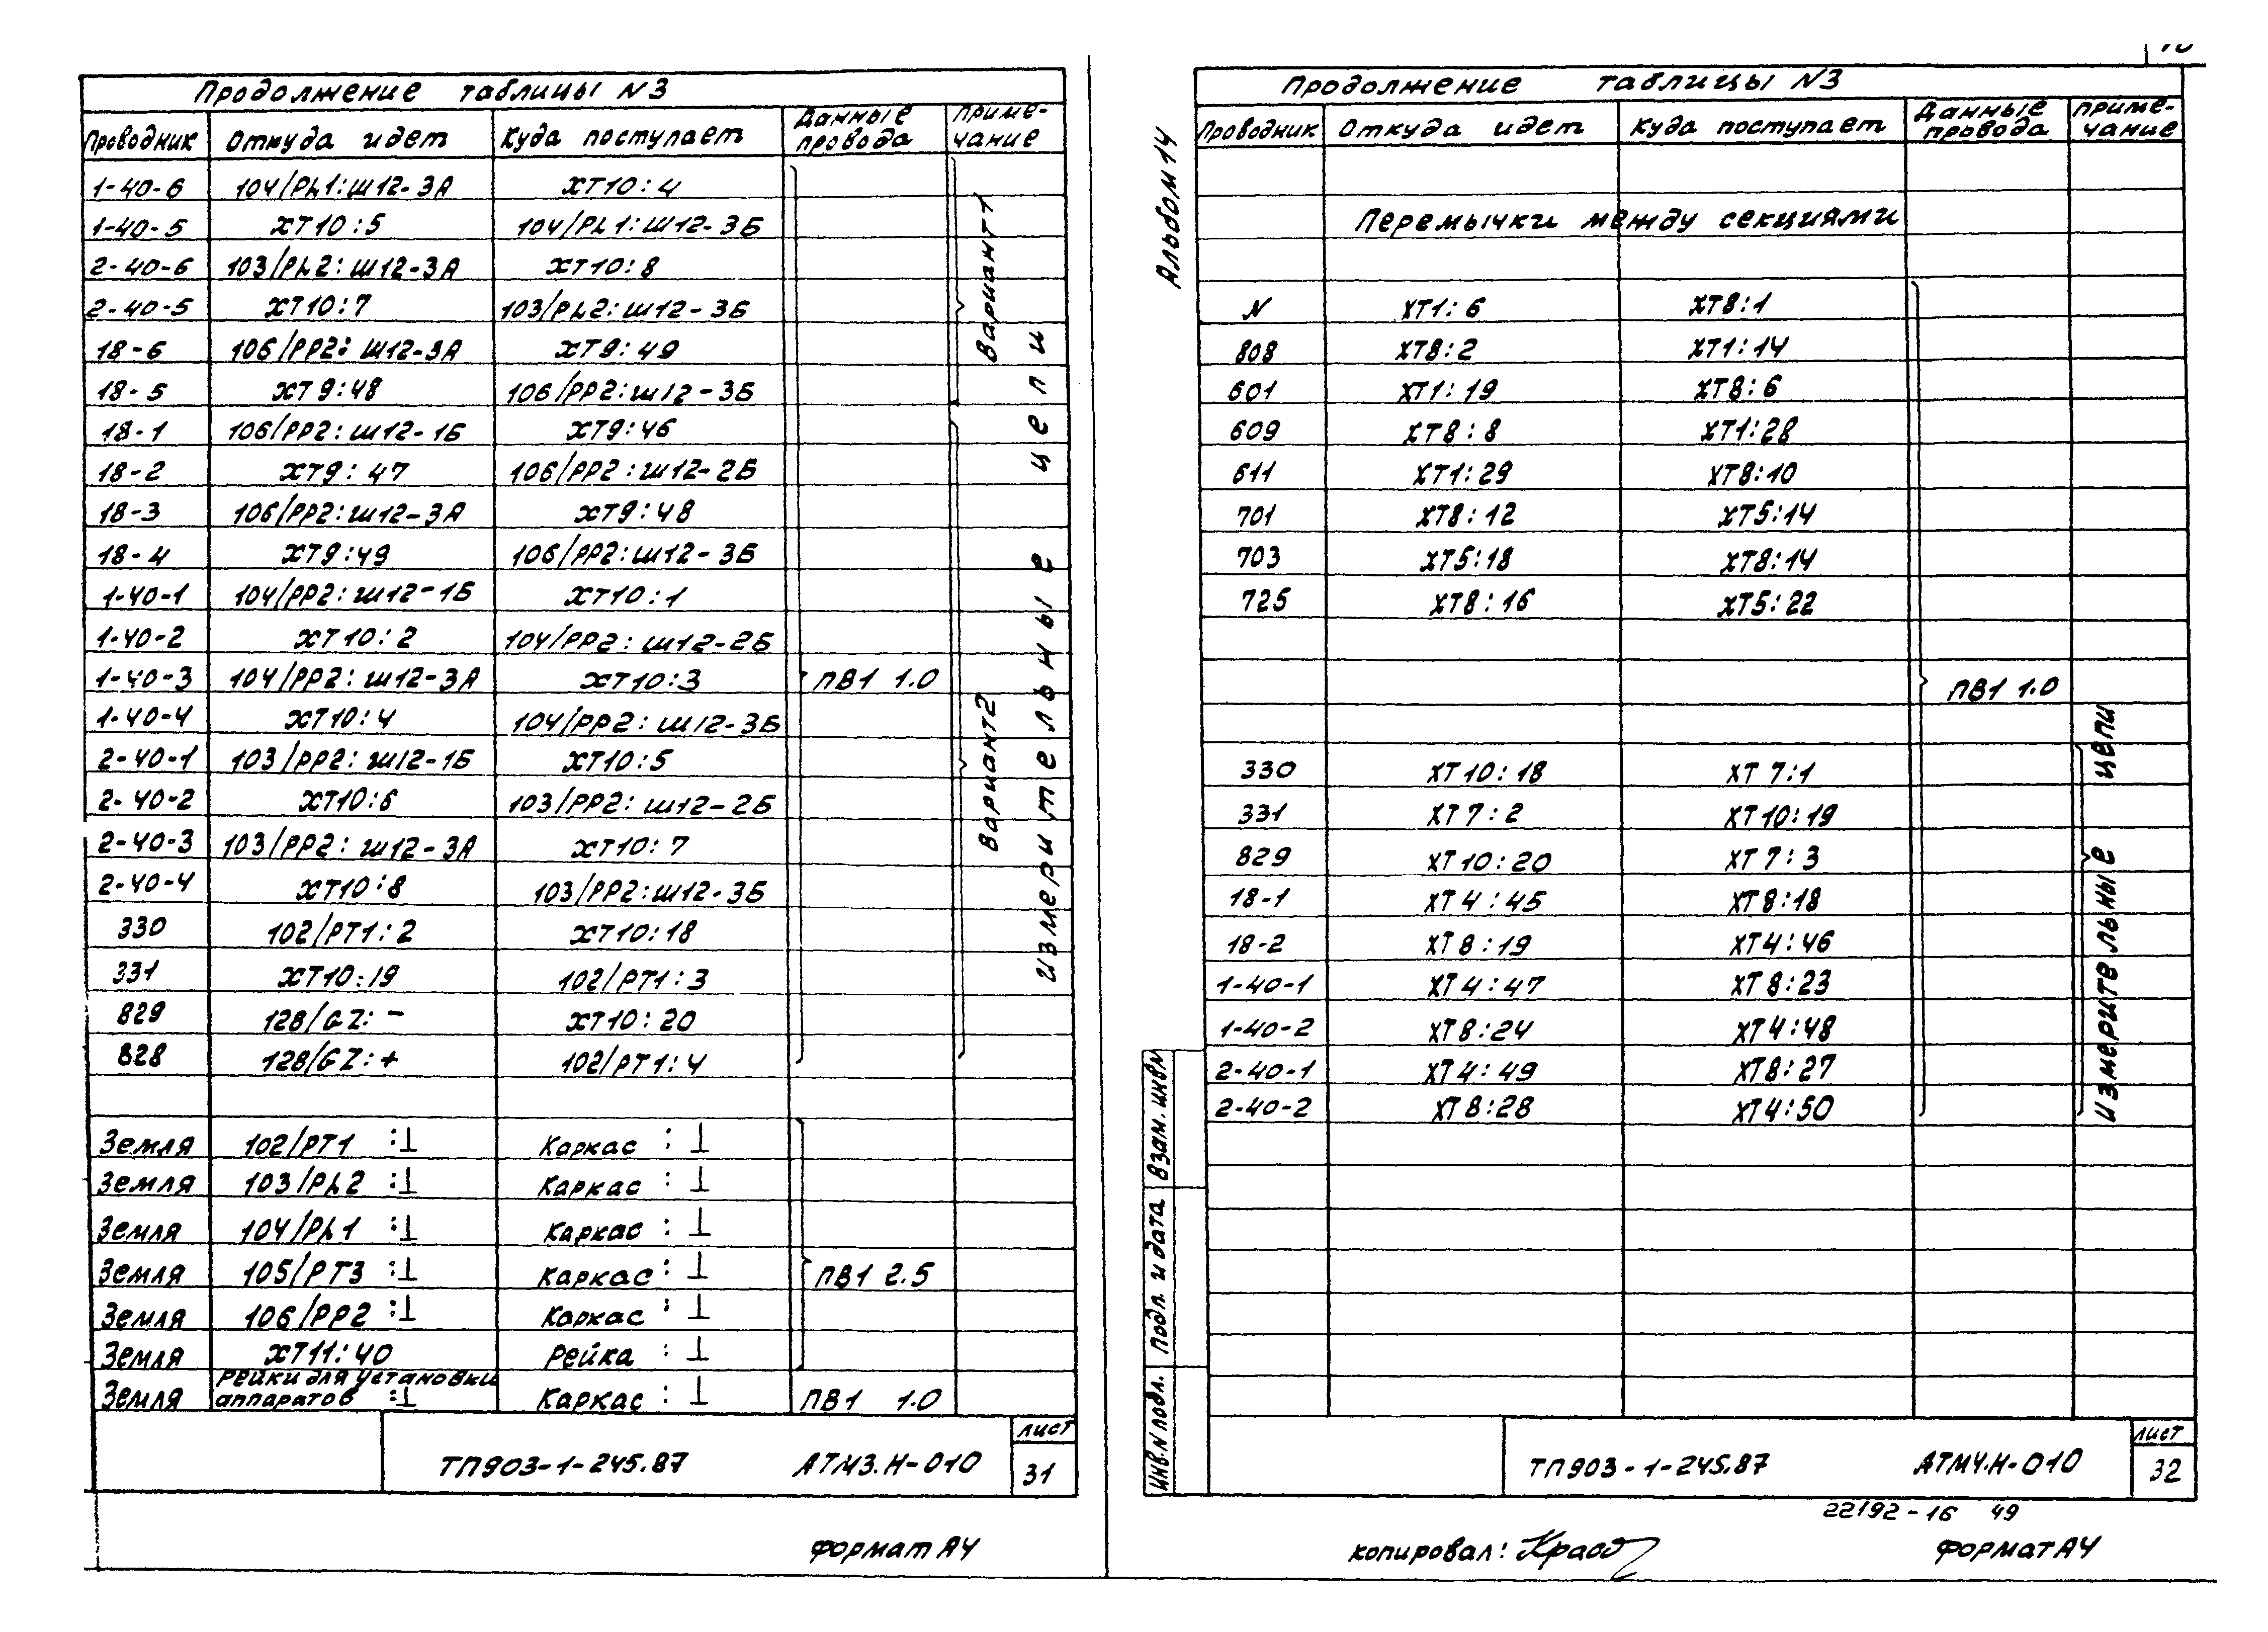 Продолжение таблицы N3
Проводник Откуда идет Куда поступает Данные провода Приме-чание
1-40-6 104/PL1:Ш12-3А XT10:4
1-40-5 XT10:5 104/PL1:Ш12-3Б
2-40-6 103/PL2:Ш12-3А XT10:8
2-40-5 XT10:7 103/PL2:Ш12-3Б
18-6 106/PP2:Ш12-3А XT9:49
18-5 XT9:48 106/PP2:Ш12-3Б
Вариант 1
18-1 106/PP2:Ш12-1Б XT9:46
18-2 XT9:47 106/PP2:Ш12-2Б
18-3 106/PP2:Ш12-3А XT9:48
18-4 XT9:49 106/PP2:Ш12-3Б
1-40-1 104/PP2:Ш12-1Б XT10:1
1-40-2 XT10:2 104/PP2:Ш12-2Б
1-40-3 104/PP2:Ш12-3А XT10:3 ПВ1 1.0
1-40-4 XT10:4 104/PP2:Ш12-3Б
2-40-1 103/PP2:Ш12-1Б XT10:5
2-40-2 XT10:6 103/PP2:Ш12-2Б
2-40-3 103/PP2:Ш12-3А XT10:7
2-40-4 XT10:8 103/PP2:Ш12-3Б
330 102/PT1:2 XT10:18
331 XT10:19 102/PT1:3
829 128/GZ:- XT10:20
828 128/GZ:+ 102/PT1:4
Вариант 2
Измерительные цепи
Земля 102/PT1 :⊥ Каркас :⊥
Земля 103/PL2 :⊥ Каркас :⊥
Земля 104/PL1 :⊥ Каркас :⊥
Земля 105/PT3 :⊥ Каркас :⊥ ПВ1 2.5
Земля 106/PP2 :⊥ Каркас :⊥
Земля XT11:40 Рейка :⊥
Земля Рейки для установки аппаратов :⊥ Каркас :⊥ ПВ1 1.0
ТП903-1-245.87 АТМ3.Н-010 лист 31
Формат А4
Альбом 14
Продолжение таблицы N3
Проводник Откуда идет Куда поступает Данные провода Приме-чание
Перемычки между секциями
N XT1:6 XT8:1
808 XT8:2 XT1:14
601 XT1:19 XT8:6
609 XT8:8 XT1:28
611 XT1:29 XT8:10
701 XT8:12 XT5:14
703 XT5:18 XT8:14
725 XT8:16 XT5:22
ПВ1 1.0
330 XT10:18 XT7:1
331 XT7:2 XT10:19
829 XT10:20 XT7:3
18-1 XT4:45 XT8:18
18-2 XT8:19 XT4:46
1-40-1 XT4:47 XT8:23
1-40-2 XT8:24 XT4:48
2-40-1 XT4:49 XT8:27
2-40-2 XT8:28 XT4:50
Измерительные цепи
Инв.N подл. Подп. и дата Взам. инвN
ТП903-1-245.87 АТМ4.Н-010 лист 32
22192-16 49
копировал: Формат А4